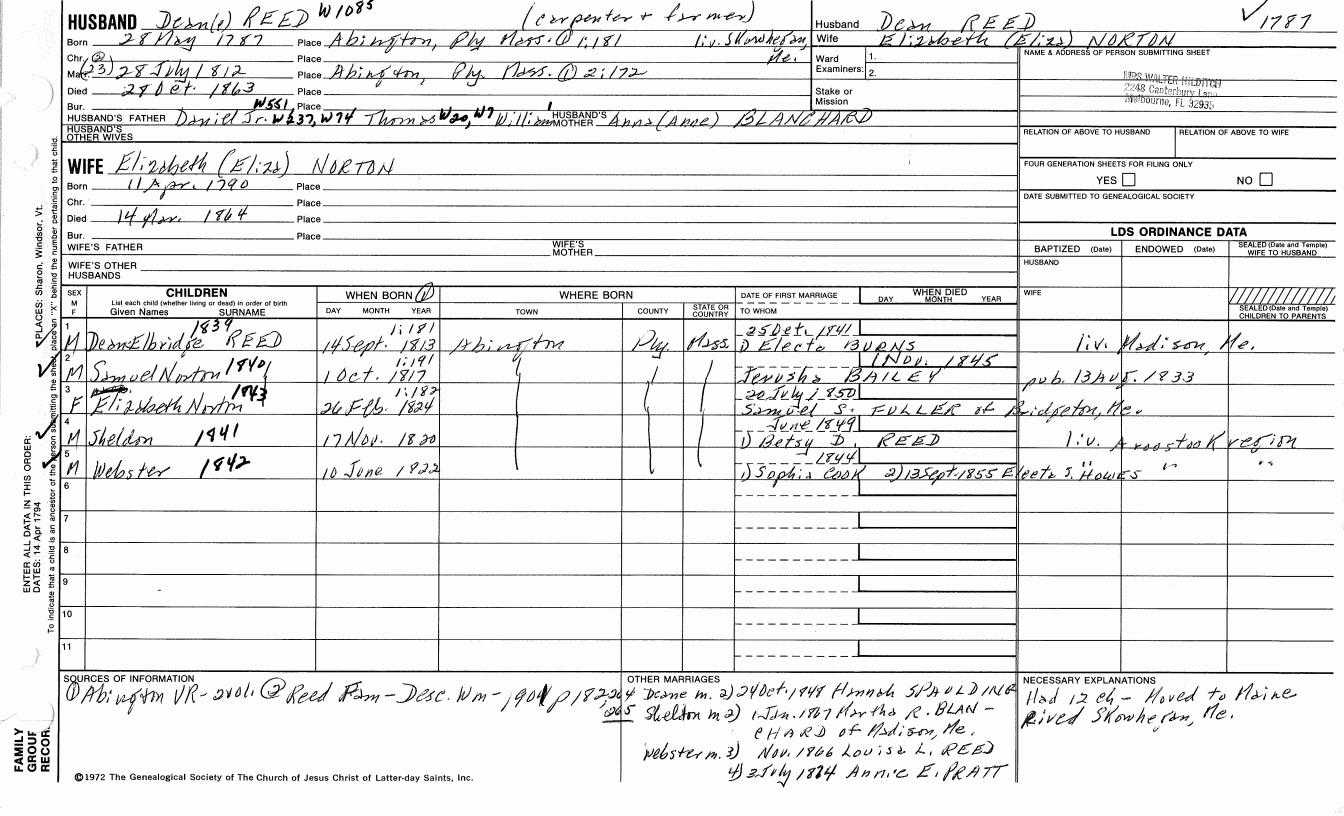 HUSBAND Dean(e) REED W1085 (carpenter + farmer)
Born 28 May 1787 Place Abington, Ply Mass. ① 1:181 liv. Skowhegan, Me.
Chr. ②
Mar. (23) 28 July 1812 Place Abington, Ply. Mass. ① 2:172
Died 28 Oct. 1863 Place
Bur. Place
HUSBAND'S FATHER Daniel Jr. W551 W237, W74 Thomas W20, W7 William 1 HUSBAND'S MOTHER Anna (Anne) BLANCHARD
HUSBAND'S OTHER WIVES
WIFE Elizabeth (Eliza) NORTON
Born 11 Apr. 1790 Place
Chr. Place
Died 14 Mar. 1864 Place
Bur. Place
WIFE'S FATHER WIFE'S MOTHER
WIFE'S OTHER HUSBANDS
Husband Dean REED ✓ 1787
Wife Elizabeth (Eliza) NORTON
Ward Examiners: 1. 2.
Stake or Mission
NAME & ADDRESS OF PERSON SUBMITTING SHEET
MRS WALTER HILDITCH
2248 Canterbury Lane
Melbourne, FL 32935
RELATION OF ABOVE TO HUSBAND RELATION OF ABOVE TO WIFE
FOUR GENERATION SHEETS FOR FILING ONLY
YES NO
DATE SUBMITTED TO GENEALOGICAL SOCIETY
LDS ORDINANCE DATA
BAPTIZED (Date) ENDOWED (Date) SEALED (Date and Temple) WIFE TO HUSBAND
HUSBAND
WIFE
SEALED (Date and Temple) CHILDREN TO PARENTS
SEX M F
CHILDREN
List each child (whether living or dead) in order of birth
Given Names SURNAME
WHEN BORN ①
DAY MONTH YEAR
WHERE BORN
TOWN COUNTY STATE OR COUNTRY
DATE OF FIRST MARRIAGE
TO WHOM
WHEN DIED
DAY MONTH YEAR
1 1839 1:181 25 Oct. 1841
M Dean Elbridge REED 14 Sept. 1813 Abington Ply. Mass. 1) Electa BURNS liv. Madison, Me.
2 1840 1:191 1 Nov. 1845
M Samuel Norton 1 Oct. 1817 Jerusha BAILEY pub. 13 Aug. 1833
3 1843 1:182 20 July 1850
F Elizabeth Norton 26 Feb. 1824 Samuel S. FULLER of Bridgeton, Me.
4 1841 June 1849
M Sheldon 17 Nov. 1820 1) Betsy D. REED liv. Aroostook region
5 1842 1844
M Webster 10 June 1822 1) Sophia COOK 2) 13 Sept. 1855 Electa S. HOWES " " "
6
7
8
9
10
11
SOURCES OF INFORMATION
① Abington VR - 2vol. ② Reed Fam - Desc. Wm - 1901 p 182, 264 265
OTHER MARRIAGES
Deane m. 2) 24 Oct. 1848 Hannah SPAULDING
Sheldon m 2) 1 Jan. 1867 Martha R. BLAN-
CHARD of Madison, Me.
Webster m. 3) Nov. 1866 Louisa L. REED
4) 3 July 1874 Annie E. PRATT
NECESSARY EXPLANATIONS
Had 12 ch - Moved to Maine
Lived Skowhegan, Me.
©1972 The Genealogical Society of The Church of Jesus Christ of Latter-day Saints, Inc.
FAMILY GROUP RECOR
ENTER ALL DATA IN THIS ORDER:
DATES: 14 Apr 1794
PLACES: Sharon, Windsor, Vt.
To indicate that a child is an ancestor of the person submitting the sheet, place an "X" behind the number pertaining to that child.